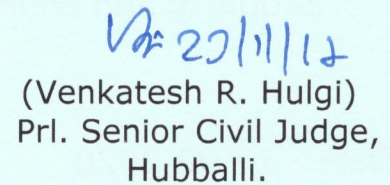 23/11/17
(Venkatesh R. Hulgi)
Prl. Senior Civil Judge,
Hubballi.